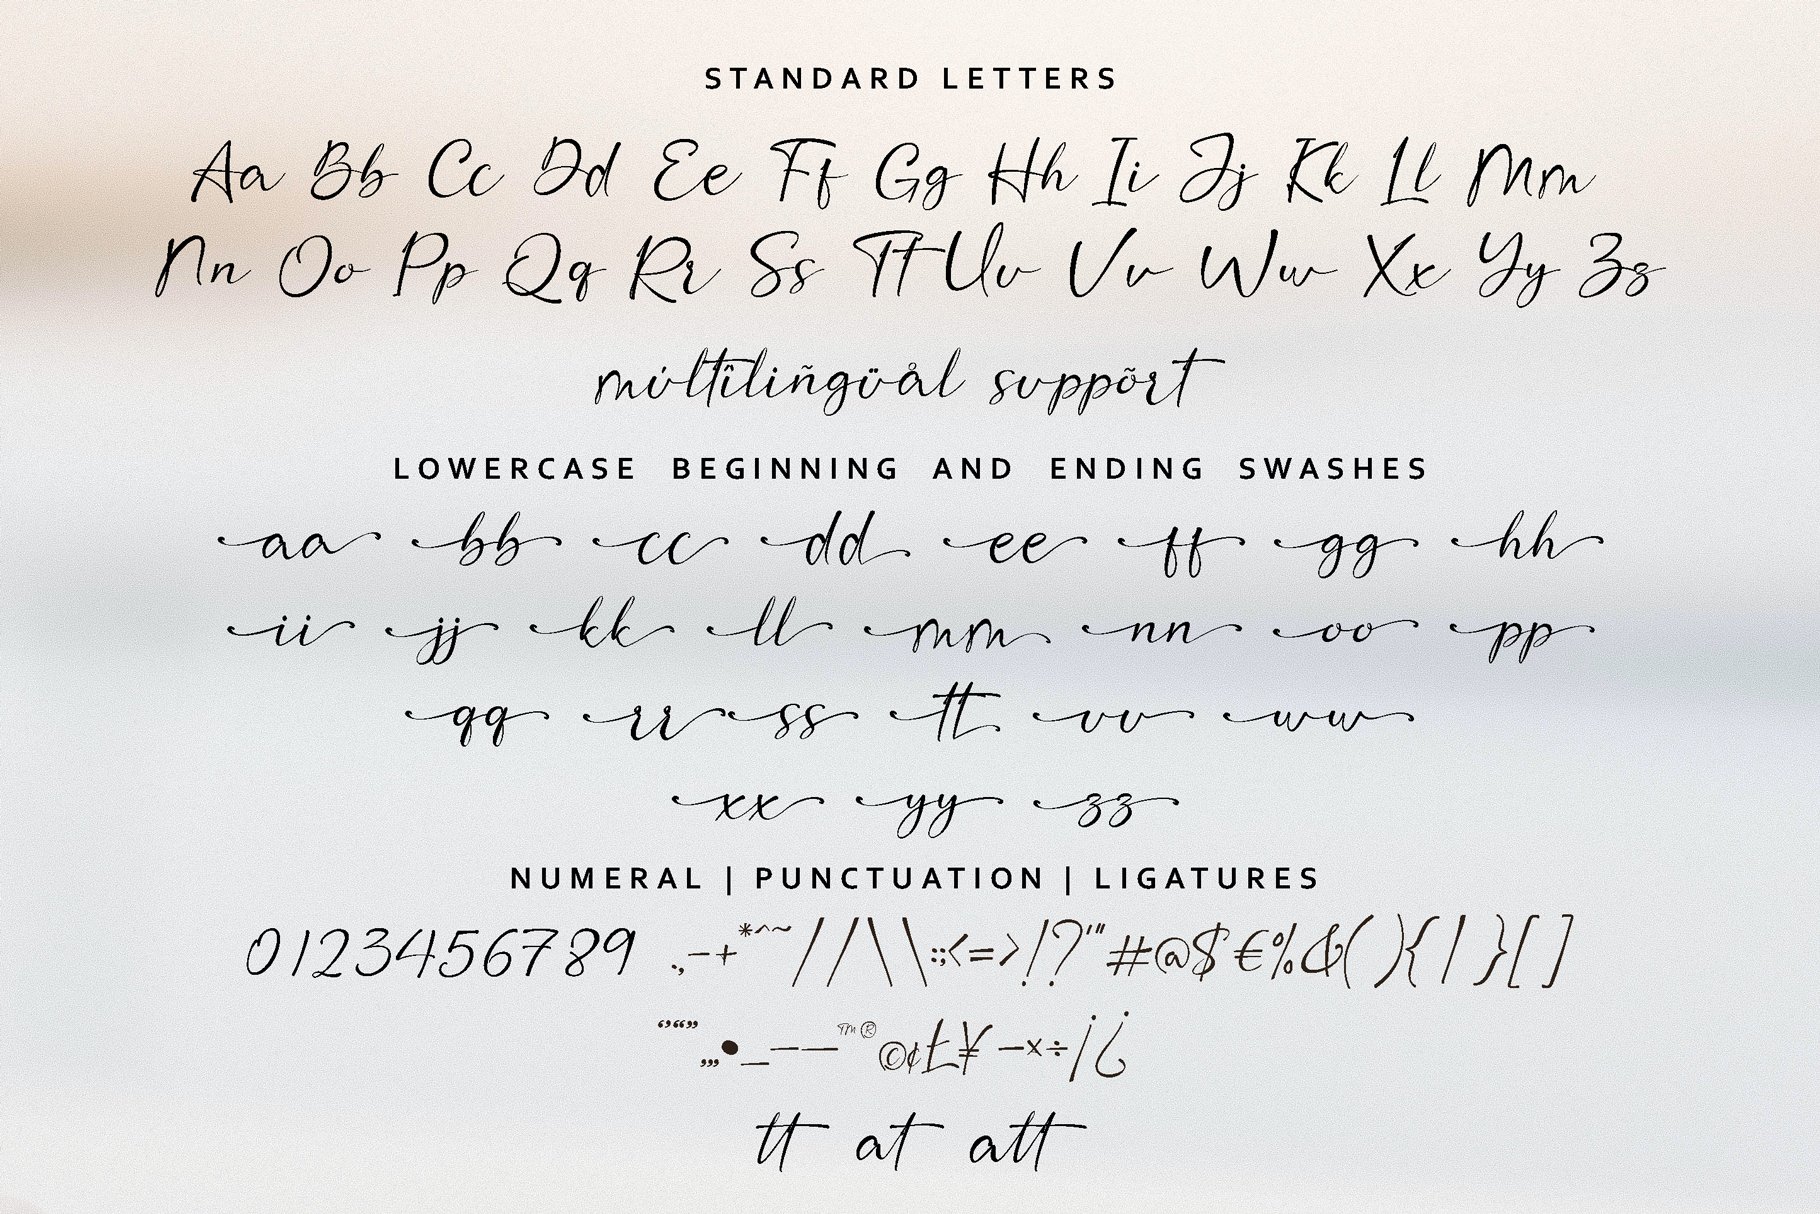 STANDARD LETTERS
Aa Bb Cc Dd Ee Ff Gg Hh Ii Jj Kk Ll Mm
Nn Oo Pp Qq Rr Ss Tt Uu Vv Ww Xx Yy Zz
múltîliñgüål suppõrt
LOWERCASE BEGINNING AND ENDING SWASHES
aa bb cc dd ee ff gg hh
ii jj kk ll mm nn oo pp
qq rr ss tt vv ww
xx yy zz
NUMERAL | PUNCTUATION | LIGATURES
0123456789 .,-+*^~//\\:;<=>!?'"#@$€%&(){|}[]
‘’“”‚„•_–—™®©¢£¥−×÷¡¿
tt at att